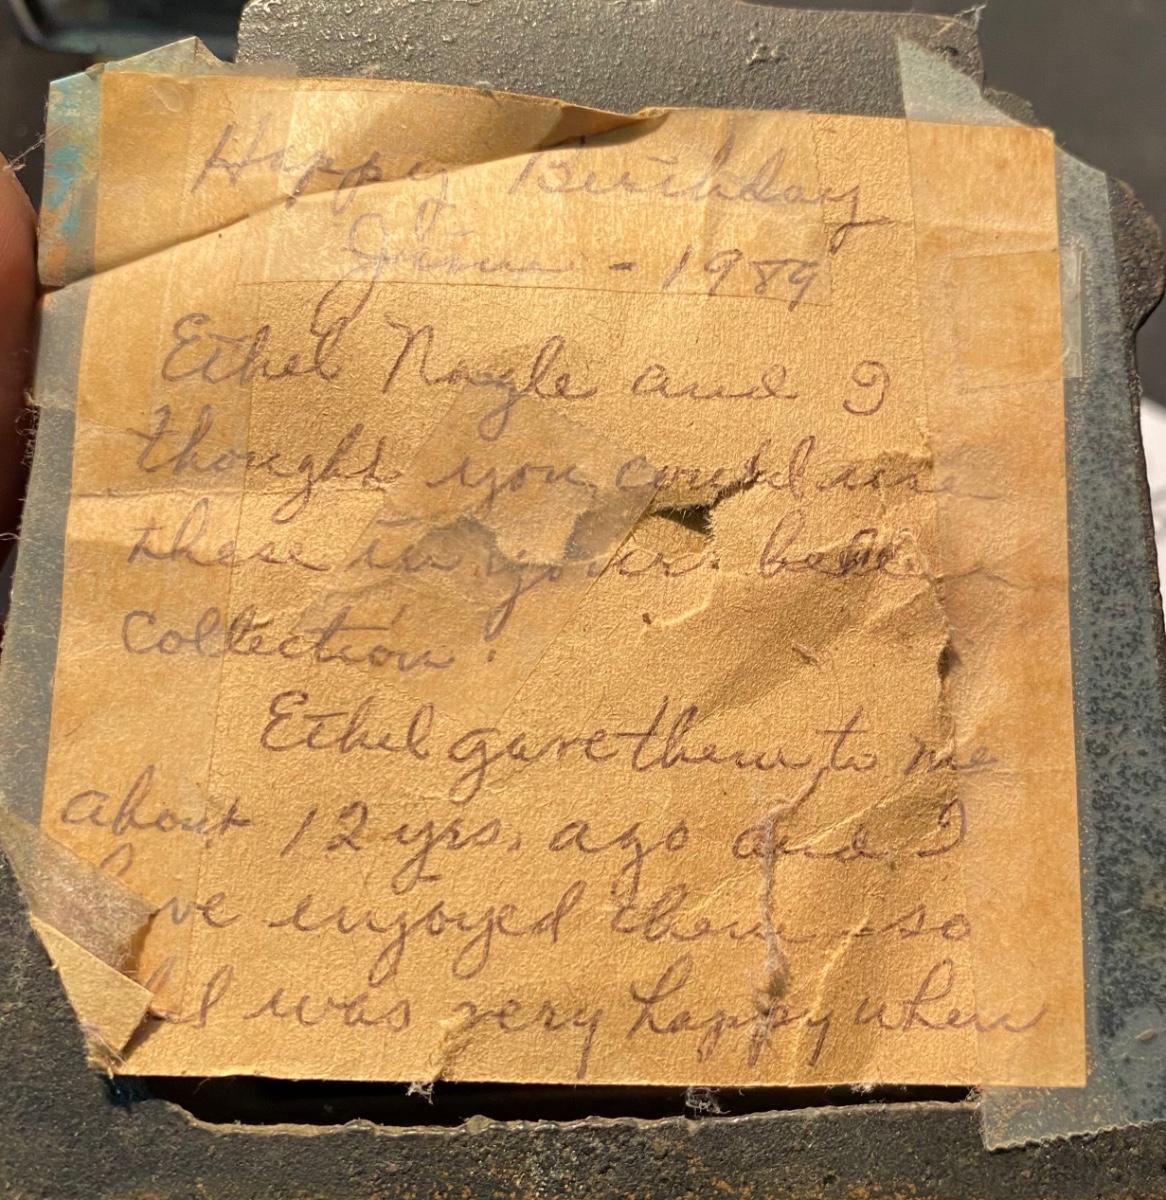 Happy Birthday
- 1989
Ethel Nagle and I
thought you could use
these in your bell
collection.
Ethel gave them to me
about 12 yrs. ago and I
've enjoyed them so
was very happy when